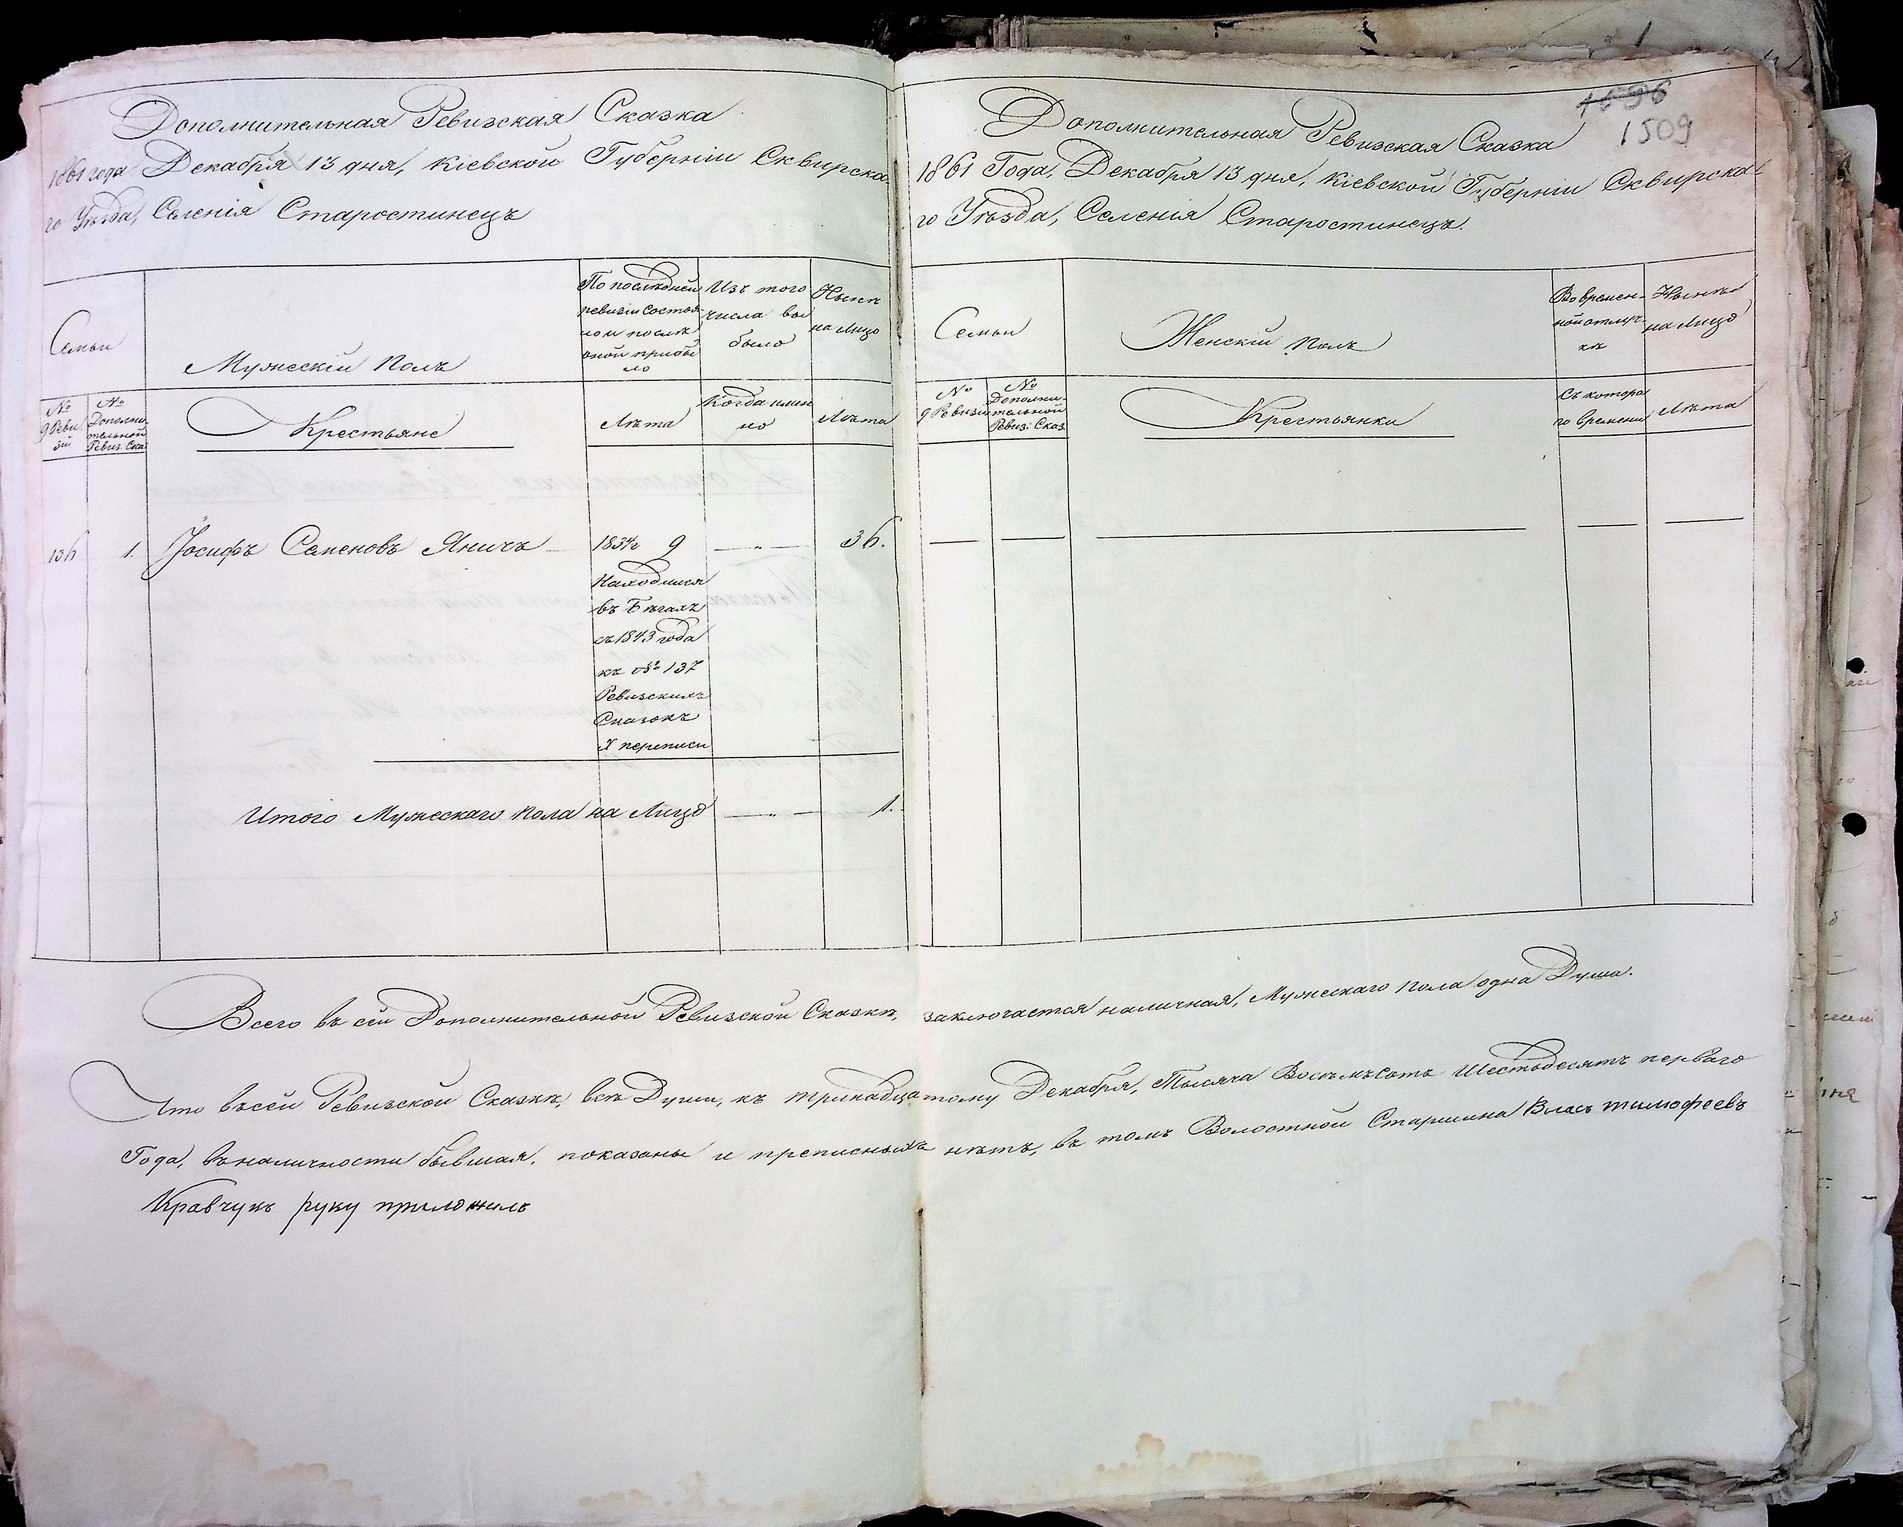 Дополнительная Ревизская Сказка
1861 года Декабря 13 дня, Кіевской Губерніи Сквирска-
го Уѣзда, Селенія Старостинецъ
Семьи
Мужескій Полъ
По послѣдней
ревизіи состоя
ло и послѣ
оной прибы
ло
Изъ того
числа вы
было
Нынѣ
на Лицо
№
9 Реви
зіи
№
Дополни
тельной
Ревиз. Сказ
Крестьяне
Лѣта
Когда имен
но
Лѣта
136
1.
Іосифъ Семеновъ Яничъ
1834/2 9
36.
Находился
въ Бѣгахъ
съ 1843 года
къ № 137
Ревизскихъ
Сказокъ
X переписи
Итого Мужескаго пола на Лицо
1.
1696
1509
Дополнительная Ревизская Сказка
1861 Года, Декабря 13 дня, Кіевской Губерніи Сквирска-
го Уѣзда, Селенія Старостинецъ.
Семьи
Женскій Полъ
Во времен-
ной отлуч-
кѣ
Нынѣ
на Лицо
№
9 Ревизіи
№
Дополни-
тельной
Ревиз: Сказ
Крестьянки
Съ котора
го времени
Лѣта
Всего въ сей Дополнительной Ревизской Сказкѣ, заключается наличная, Мужескаго пола одна Душа.
Что въ сей Ревизской Сказкѣ, всѣ Души, къ тринадцатому Декабря, Тысяча Восемьсотъ Шестьдесятъ перваго
Года, въ наличности бывшая, показаны и преписныхъ нѣтъ, въ томъ Волостной Старшина Власъ Тимофеевъ
Кравчукъ руку приложилъ